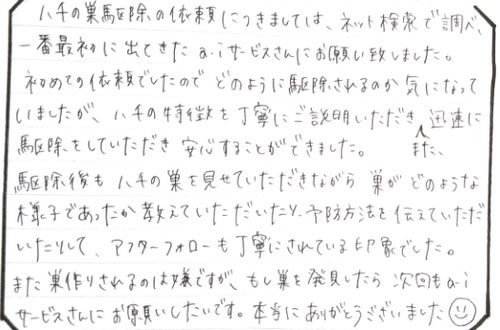 ハチの巣駆除の依頼につきましては、ネット検索で調べ、
一番最初に出てきた a-iサービスさんにお願い致しました。
初めての依頼でしたので どのように駆除されるのか 気になって
いましたが、ハチの特徴を丁寧にご説明いただき 迅速に
駆除をしていただき 安心することができました。 また、
駆除後も ハチの巣を見せていただきながら 巣がどのような
様子であったか教えていただいたり、予防方法を伝えていただ
いたりして、アフターフォローも丁寧にされている印象でした。
また巣作りされるのは嫌ですが、もし巣を発見したら 次回もa-i
サービスさんに お願いしたいです。本当にありがとうございました